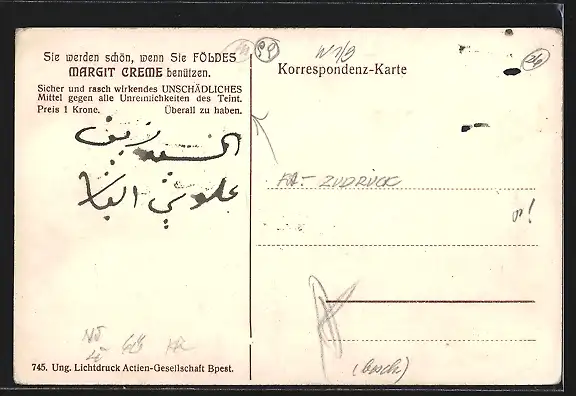 Sie werden schön, wenn Sie FÖLDES
MARGIT CREME benützen.
Sicher und rasch wirkendes UNSCHÄDLICHES
Mittel gegen alle Unreinlichkeiten des Teint.
Preis 1 Krone. Überall zu haben.
السيد
علوش
745. Ung. Lichtdruck Actien-Gesellschaft Bpest.
Korrespondenz-Karte
ZUDRUCK